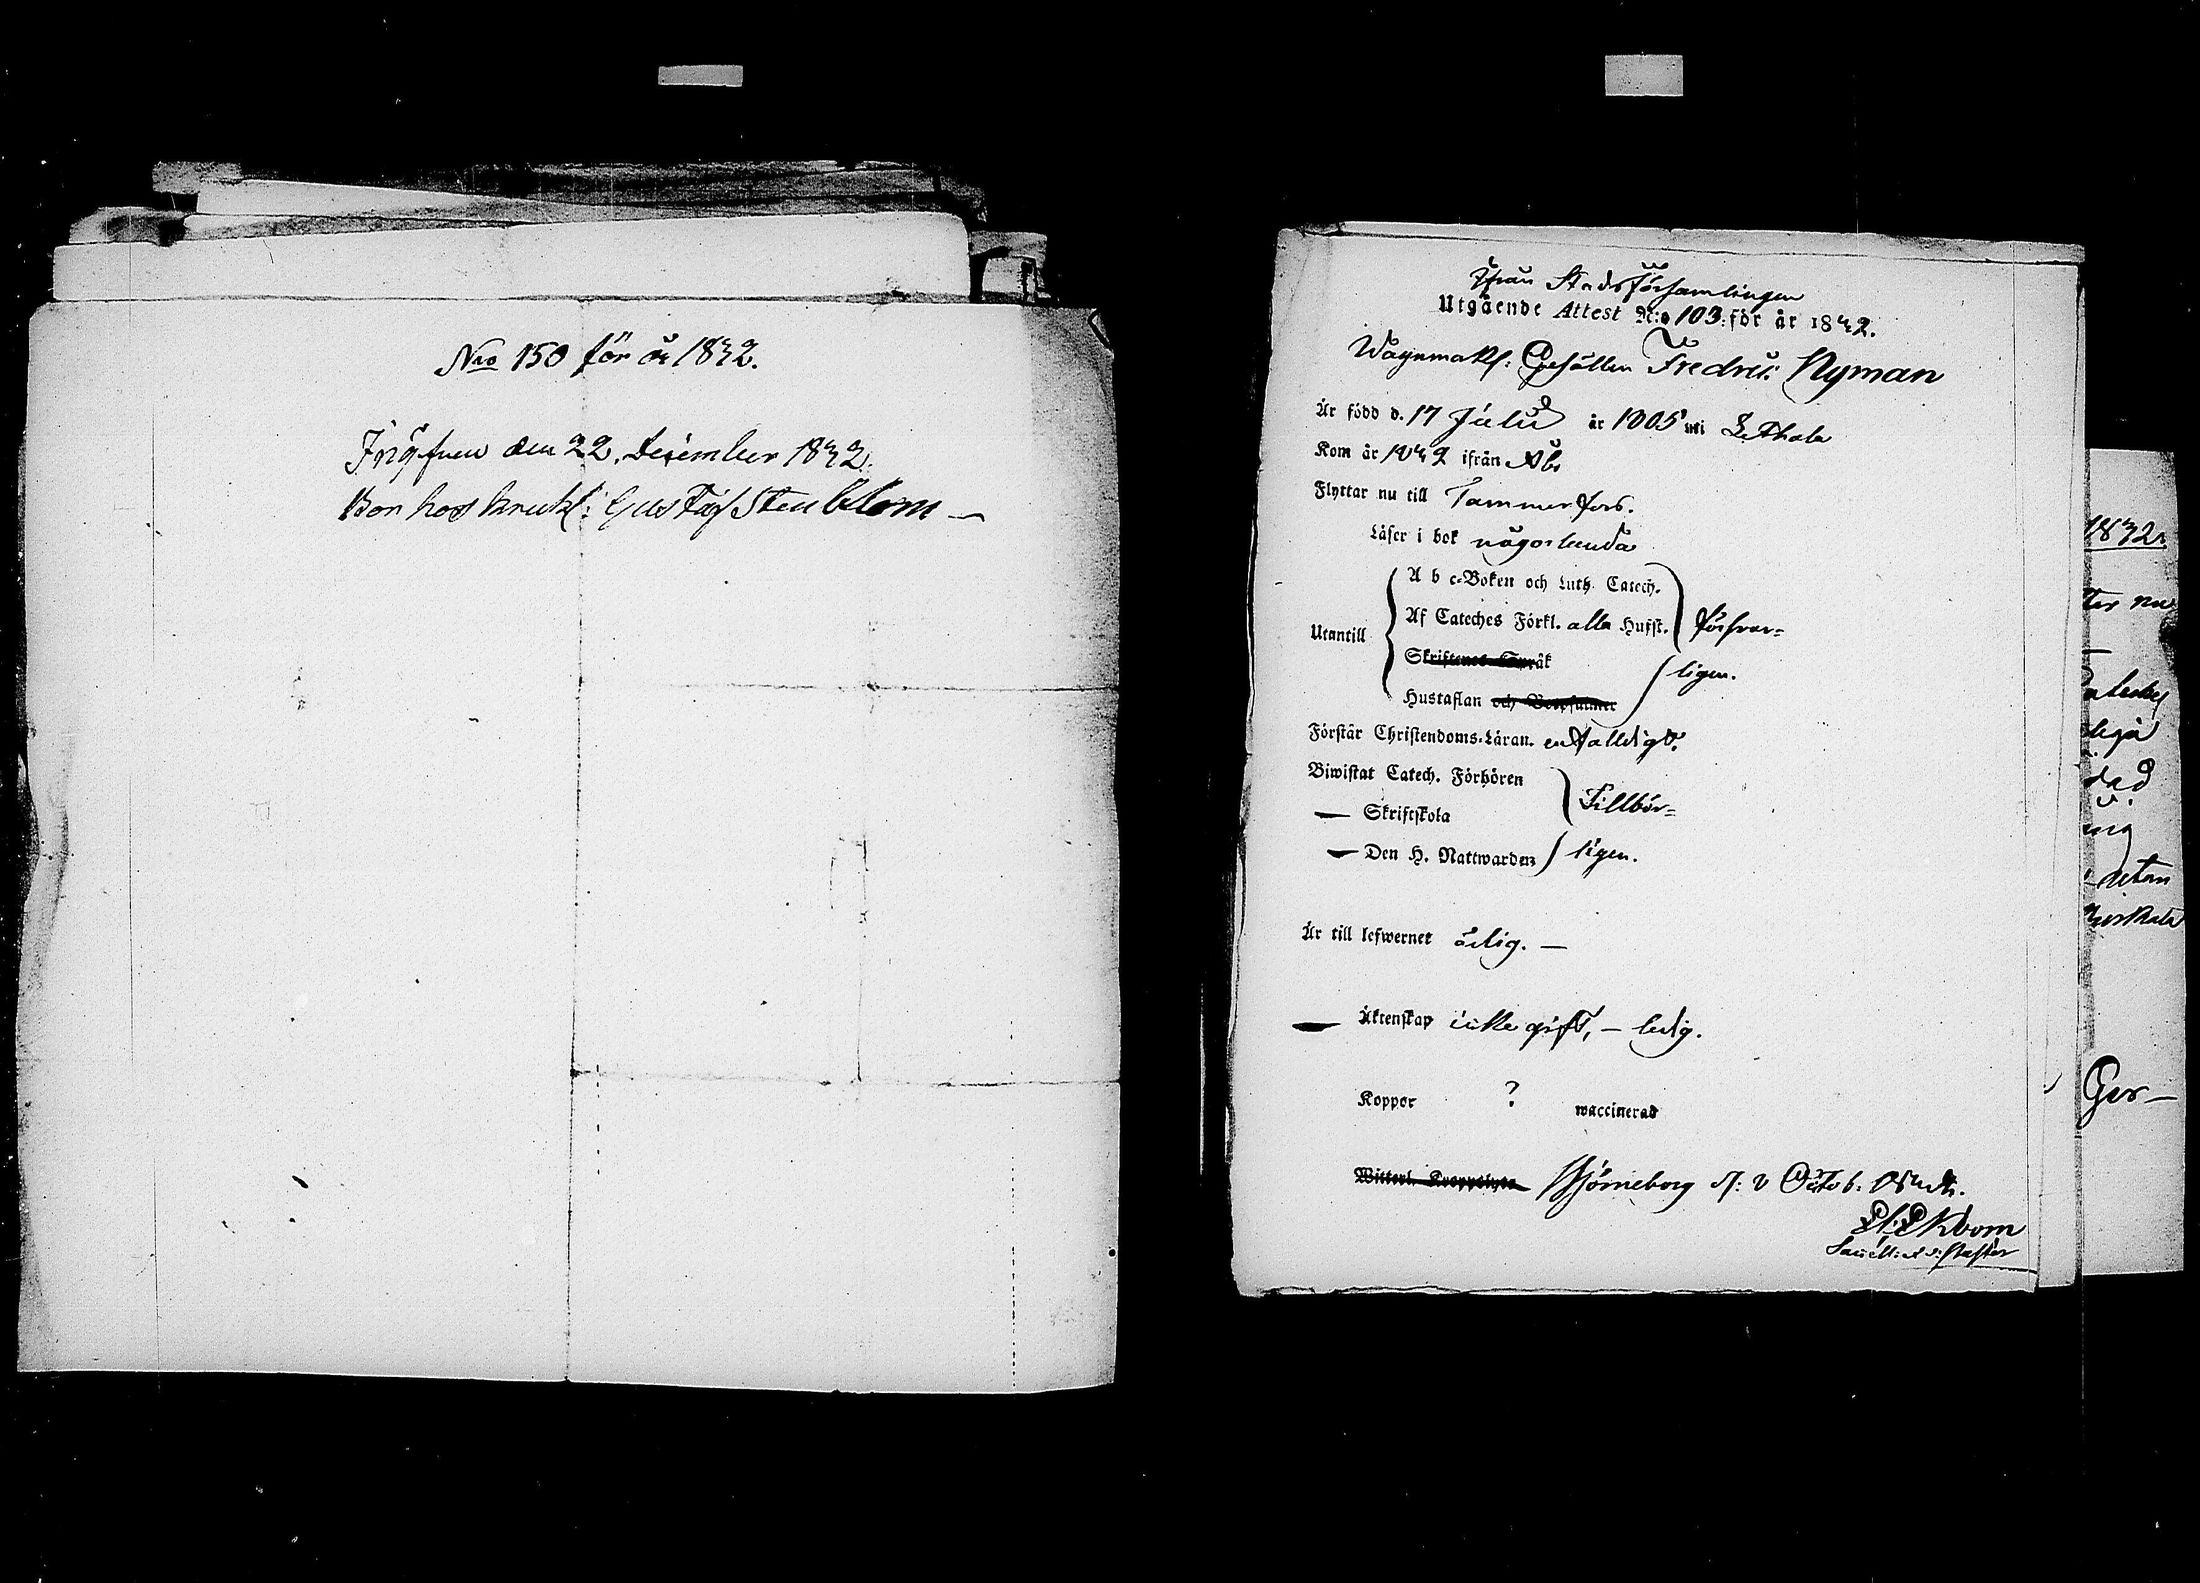 No 150 för år 1842.
Ingifven den 22. December 1842.
Bor hos kruk: Gustaf Stenblom —
Ifrån Stadsförsamlingen
Utgående Attest N:o 103: för år 1842.
Wagnmak: Gesällen Fredric Nyman
Är född d. 17 Julii år 1805 uti Letala
Kom år 1842 ifrån Åbo
Flyttar nu till Tammerfors.
Läser i bok någorlunda
Utantill
A b c-Boken och Luth. Catech.
Af Cateches Förkl. alla Hufst. försvar=
Skriftenes Språk
ligen.
Hustaflan och Botpsalmer
Förstår Christendoms-Läran. enfalldigt.
Biwistat Catech. Förhören
— Skriftskola
Tillbör=
— Den H. Nattwarden ligen.
Är till lefwernet ärlig. —
— Äktenskap icke gift, — ledig.
Koppor ? waccinerad
Witterl. Kroppslyte Björneborg d: Octob: 1842.
Ekbom
1842.
ter nu
Ger—